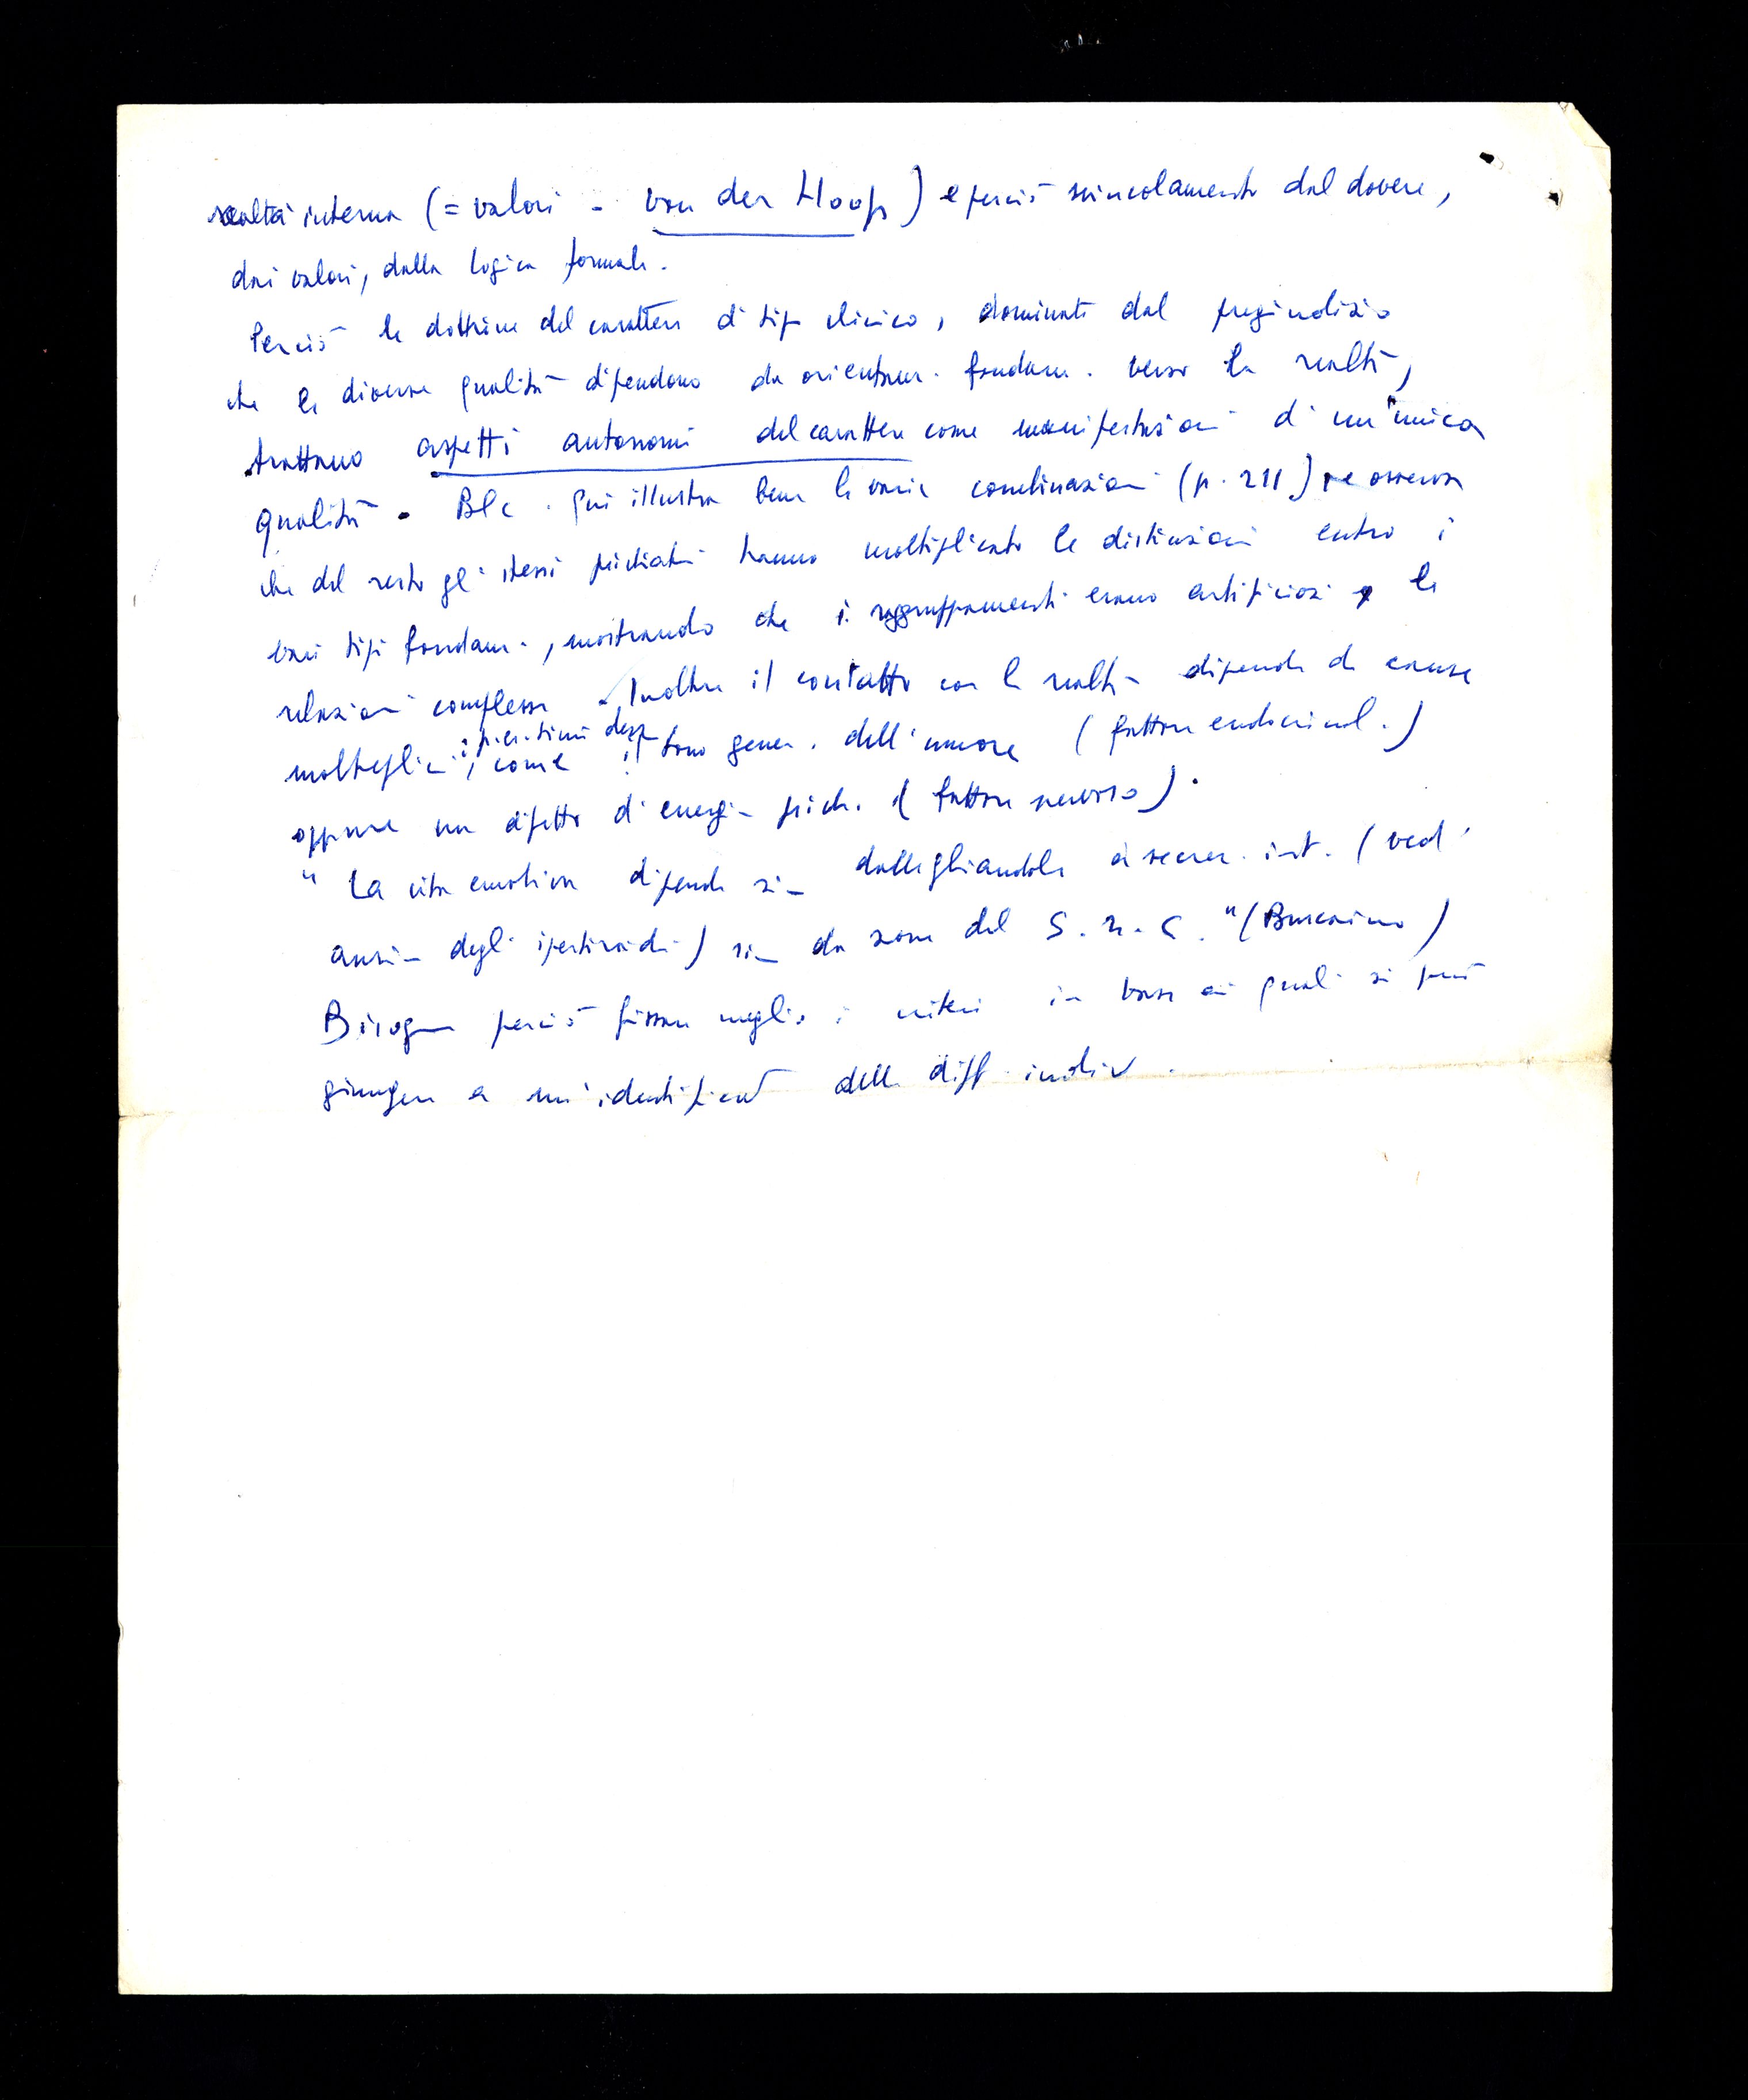 realtà interna (= valori - van der Hoop) e perciò svincolamento dal dovere,
dai valori, dalla logica formale.
Perciò le dottrine del carattere di tipo clinico, dominate dal pregiudizio
che le diverse qualità dipendono da orientam. fondam. verso la realtà,
trattano aspetti autonomi del carattere come manifestazioni di un'unica
qualità. Blc. qui illustra bene le varie combinazioni (p. 211) e osserva
che del resto gli stessi psichiatri hanno moltiplicato le distinzioni entro i
vari tipi fondam., mostrando che i raggruppamenti erano artificiosi e le
relazioni complesse. Inoltre il contatto con la realtà dipende da cause
molteplici, come il tono gener. dell'umore (fattore endocrinol.)
oppure un difetto di energia psich. (fattore nervoso).
"La vita emotiva dipende sia dalle ghiandole a secrez. int. (vedi
ansia degli ipertiroidei) sia da zone del S.N.C." (Buscaino)
Bisogna perciò fissare meglio i criteri in base ai quali si può
giungere a un'identificaz. delle diff. individ.